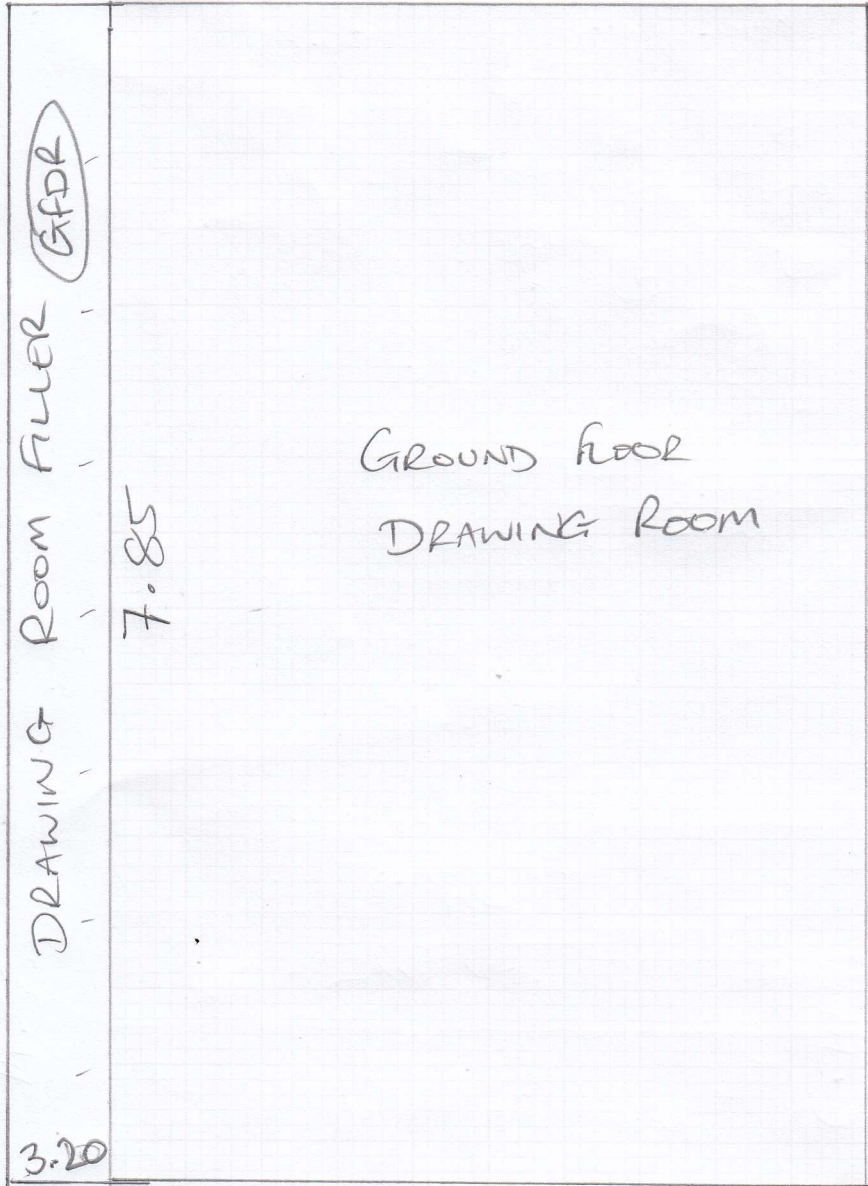 DRAWING ROOM FILLER GFDR
7.85
GROUND FLOOR
DRAWING ROOM
3.20